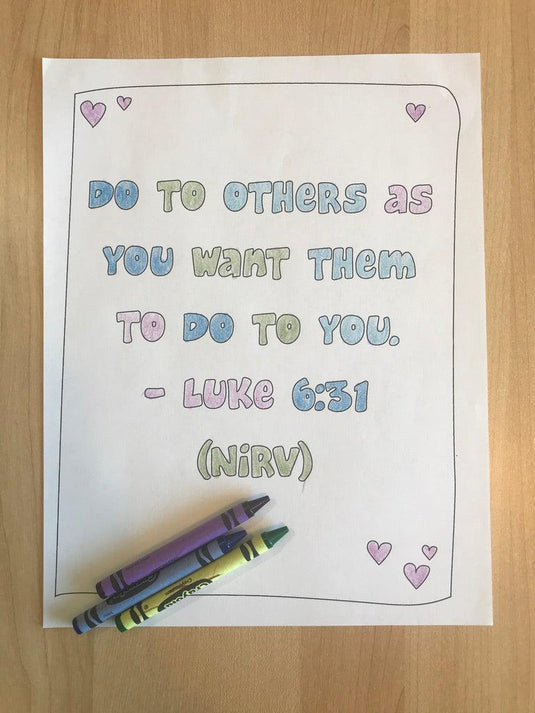 DO TO OTHeRS as
YOU WaNT THem
TO DO TO YOU.
- LUKe 6:31
(NiRV)
Crayola